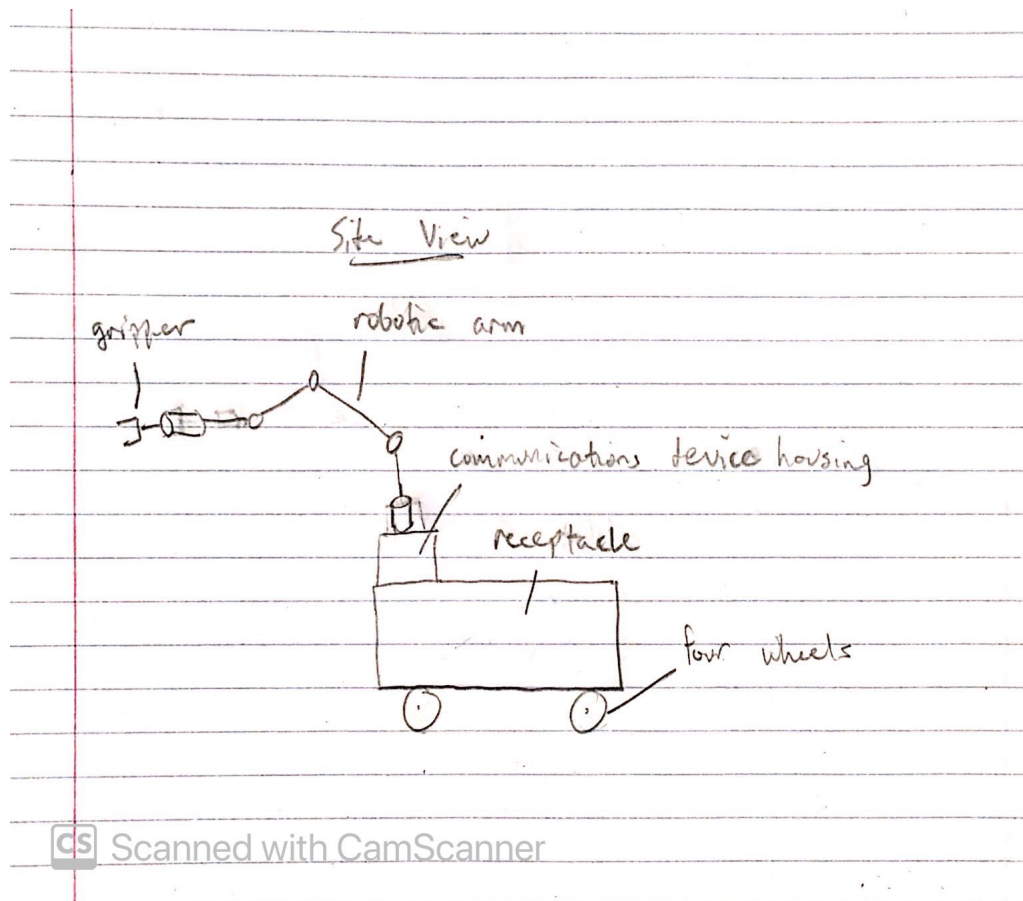 Site View
gripper
robotic arm
communications device housing
receptacle
four wheels
CS Scanned with CamScanner